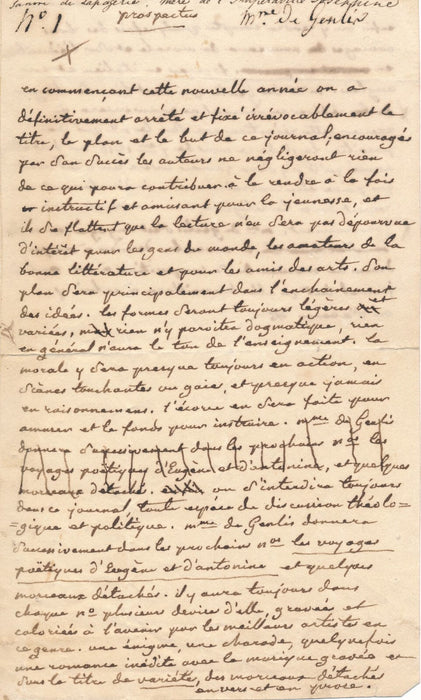 de l'impératrice Joséphine
N.o 1
prospectus
mme de Genlis
en commençant cette nouvelle année on a
définitivement arrété et fixé irrévocablement le
titre, le plan et le but de ce journal, encouragés
par son succès les auteurs ne négligeront rien
de ce qui poura contribuer à le rendre à la fois
instructif et amusant pour la jeunesse, et
ils se flattent que la lecture n'en sera pas dépourvue
d'intérêt pour les gens du monde, les amateurs de la
bonne littérature et pour les amis des arts. Son
plan sera principalement dans l'enchainement
des idées. les formes seront toujours légères et
variées, rien n'y paroitra dogmatique, rien
en général n'aura le ton de l'enseignement. la
morale y sera presque toujours en action, en
scènes touchantes ou gaies, et presque jamais
en raisonnemens. l'écorce en sera faite pour
amuser et le fonds pour instruire. mme de Genlis
donnera successivement dans les prochains nos les
voyages poëtiques d'Eugène et d'antonine, et quelques
morceaux détachés. on s'interdira toujours
dans ce journal, tout espece de discussion théolo=
=gique et politique. mme de Genlis donnera
successivement dans les prochains nos les voyages
poëtiques d'Eugène et d'antonine et quelques
morceaux détachés. il y aura toujours dans
chaque no plusieurs devises d'elle, gravées et
coloriées à l'avenir par les meilleurs artistes en
ce genre. une énigme, une charade, quelquefois
une romance inédite avec la musique gravée en
sous le titre de variétés, des morceaux détachés
en vers et en prose.